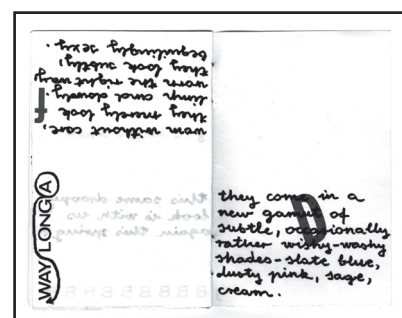 worn without care,
they merely look
limp and slovenly.
worn the right way
they look subtly,
beguilingly sexy.
WAY LONG A
this same droopy
look is with us
again this spring
they come in a
new gamut of
subtle, occasionally
rather wishy-washy
shades-slate blue,
dusty pink, sage,
cream.
D